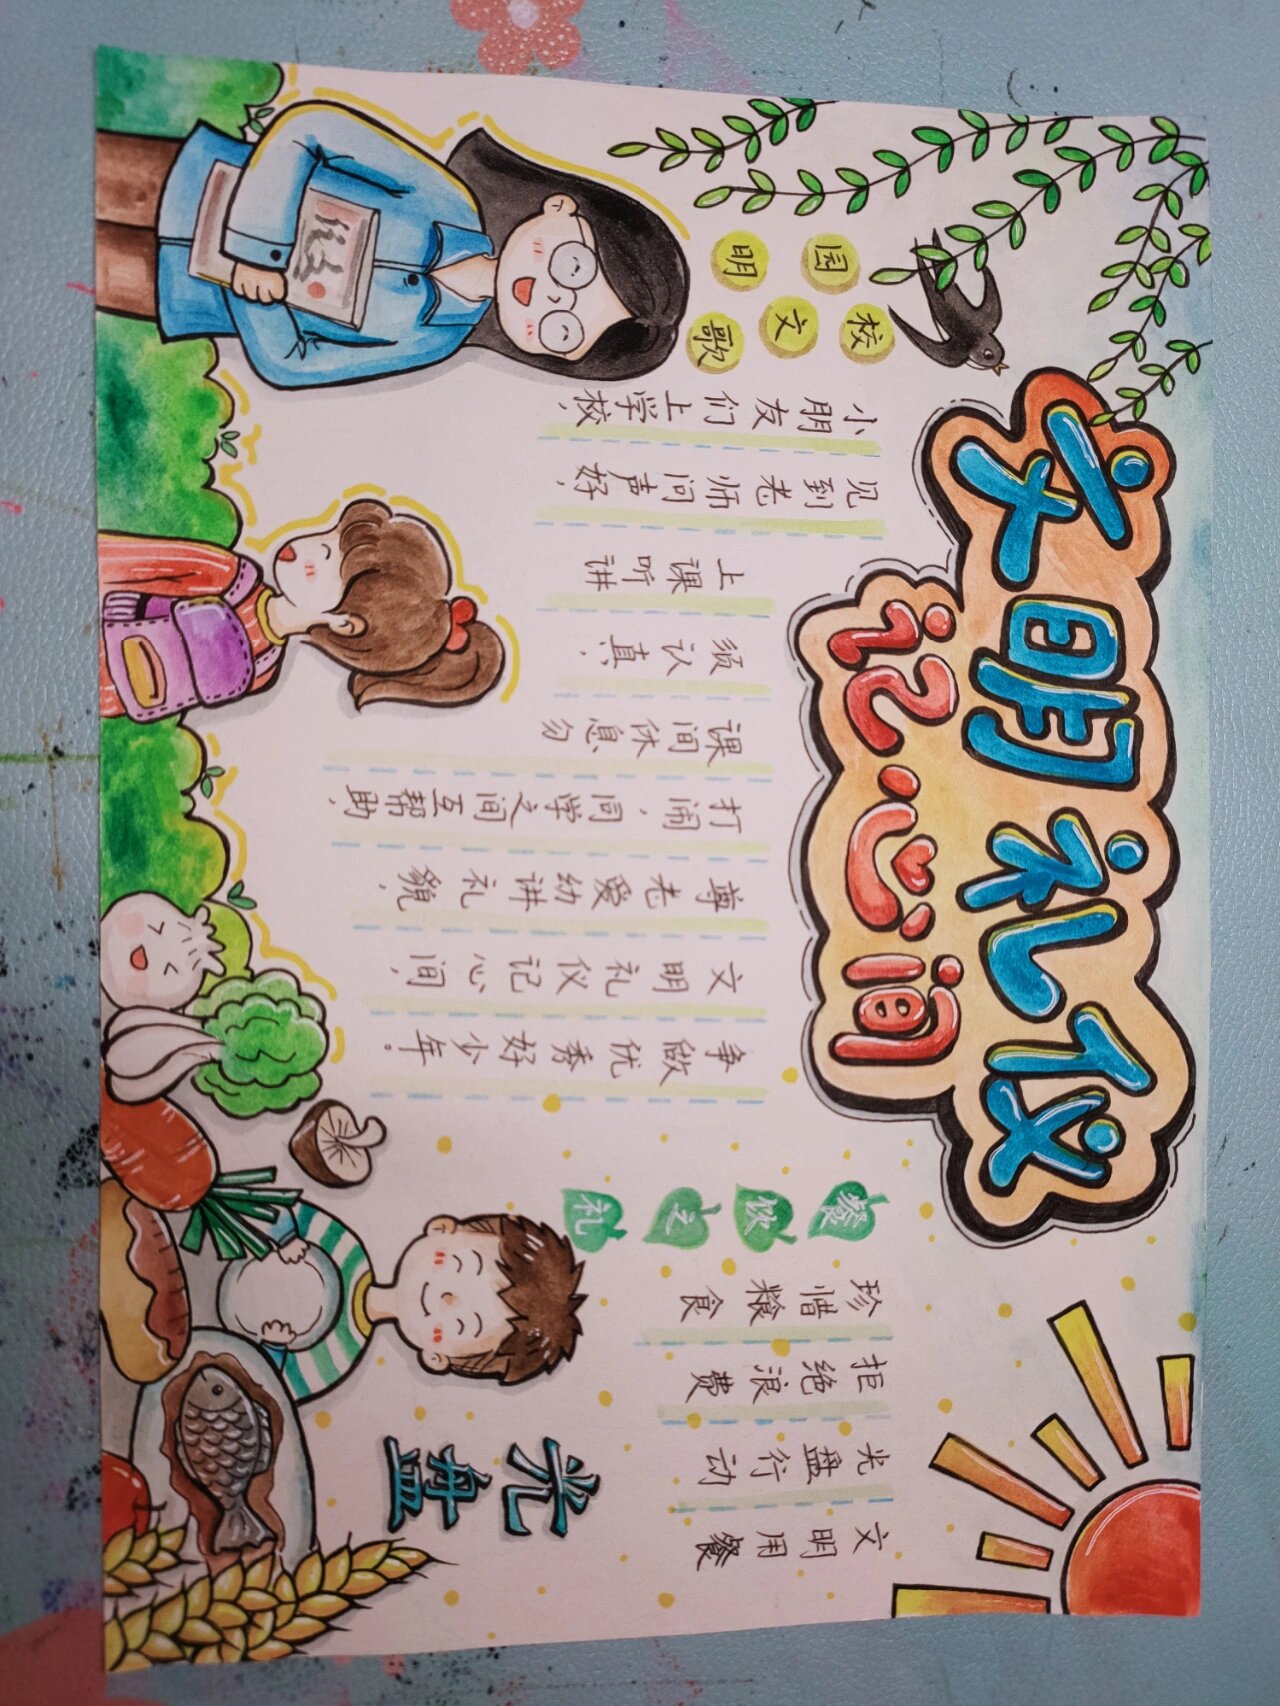 文明礼仪
记心间
校园文明歌
小朋友们上学校，
见到老师问声好，
上课听讲
须认真，
课间休息勿
打闹，同学之间互帮助，
尊老爱幼讲礼貌，
文明礼仪记心间，
争做优秀好少年。
餐饮之礼
珍惜粮食
拒绝浪费
光盘行动
文明用餐
光盘